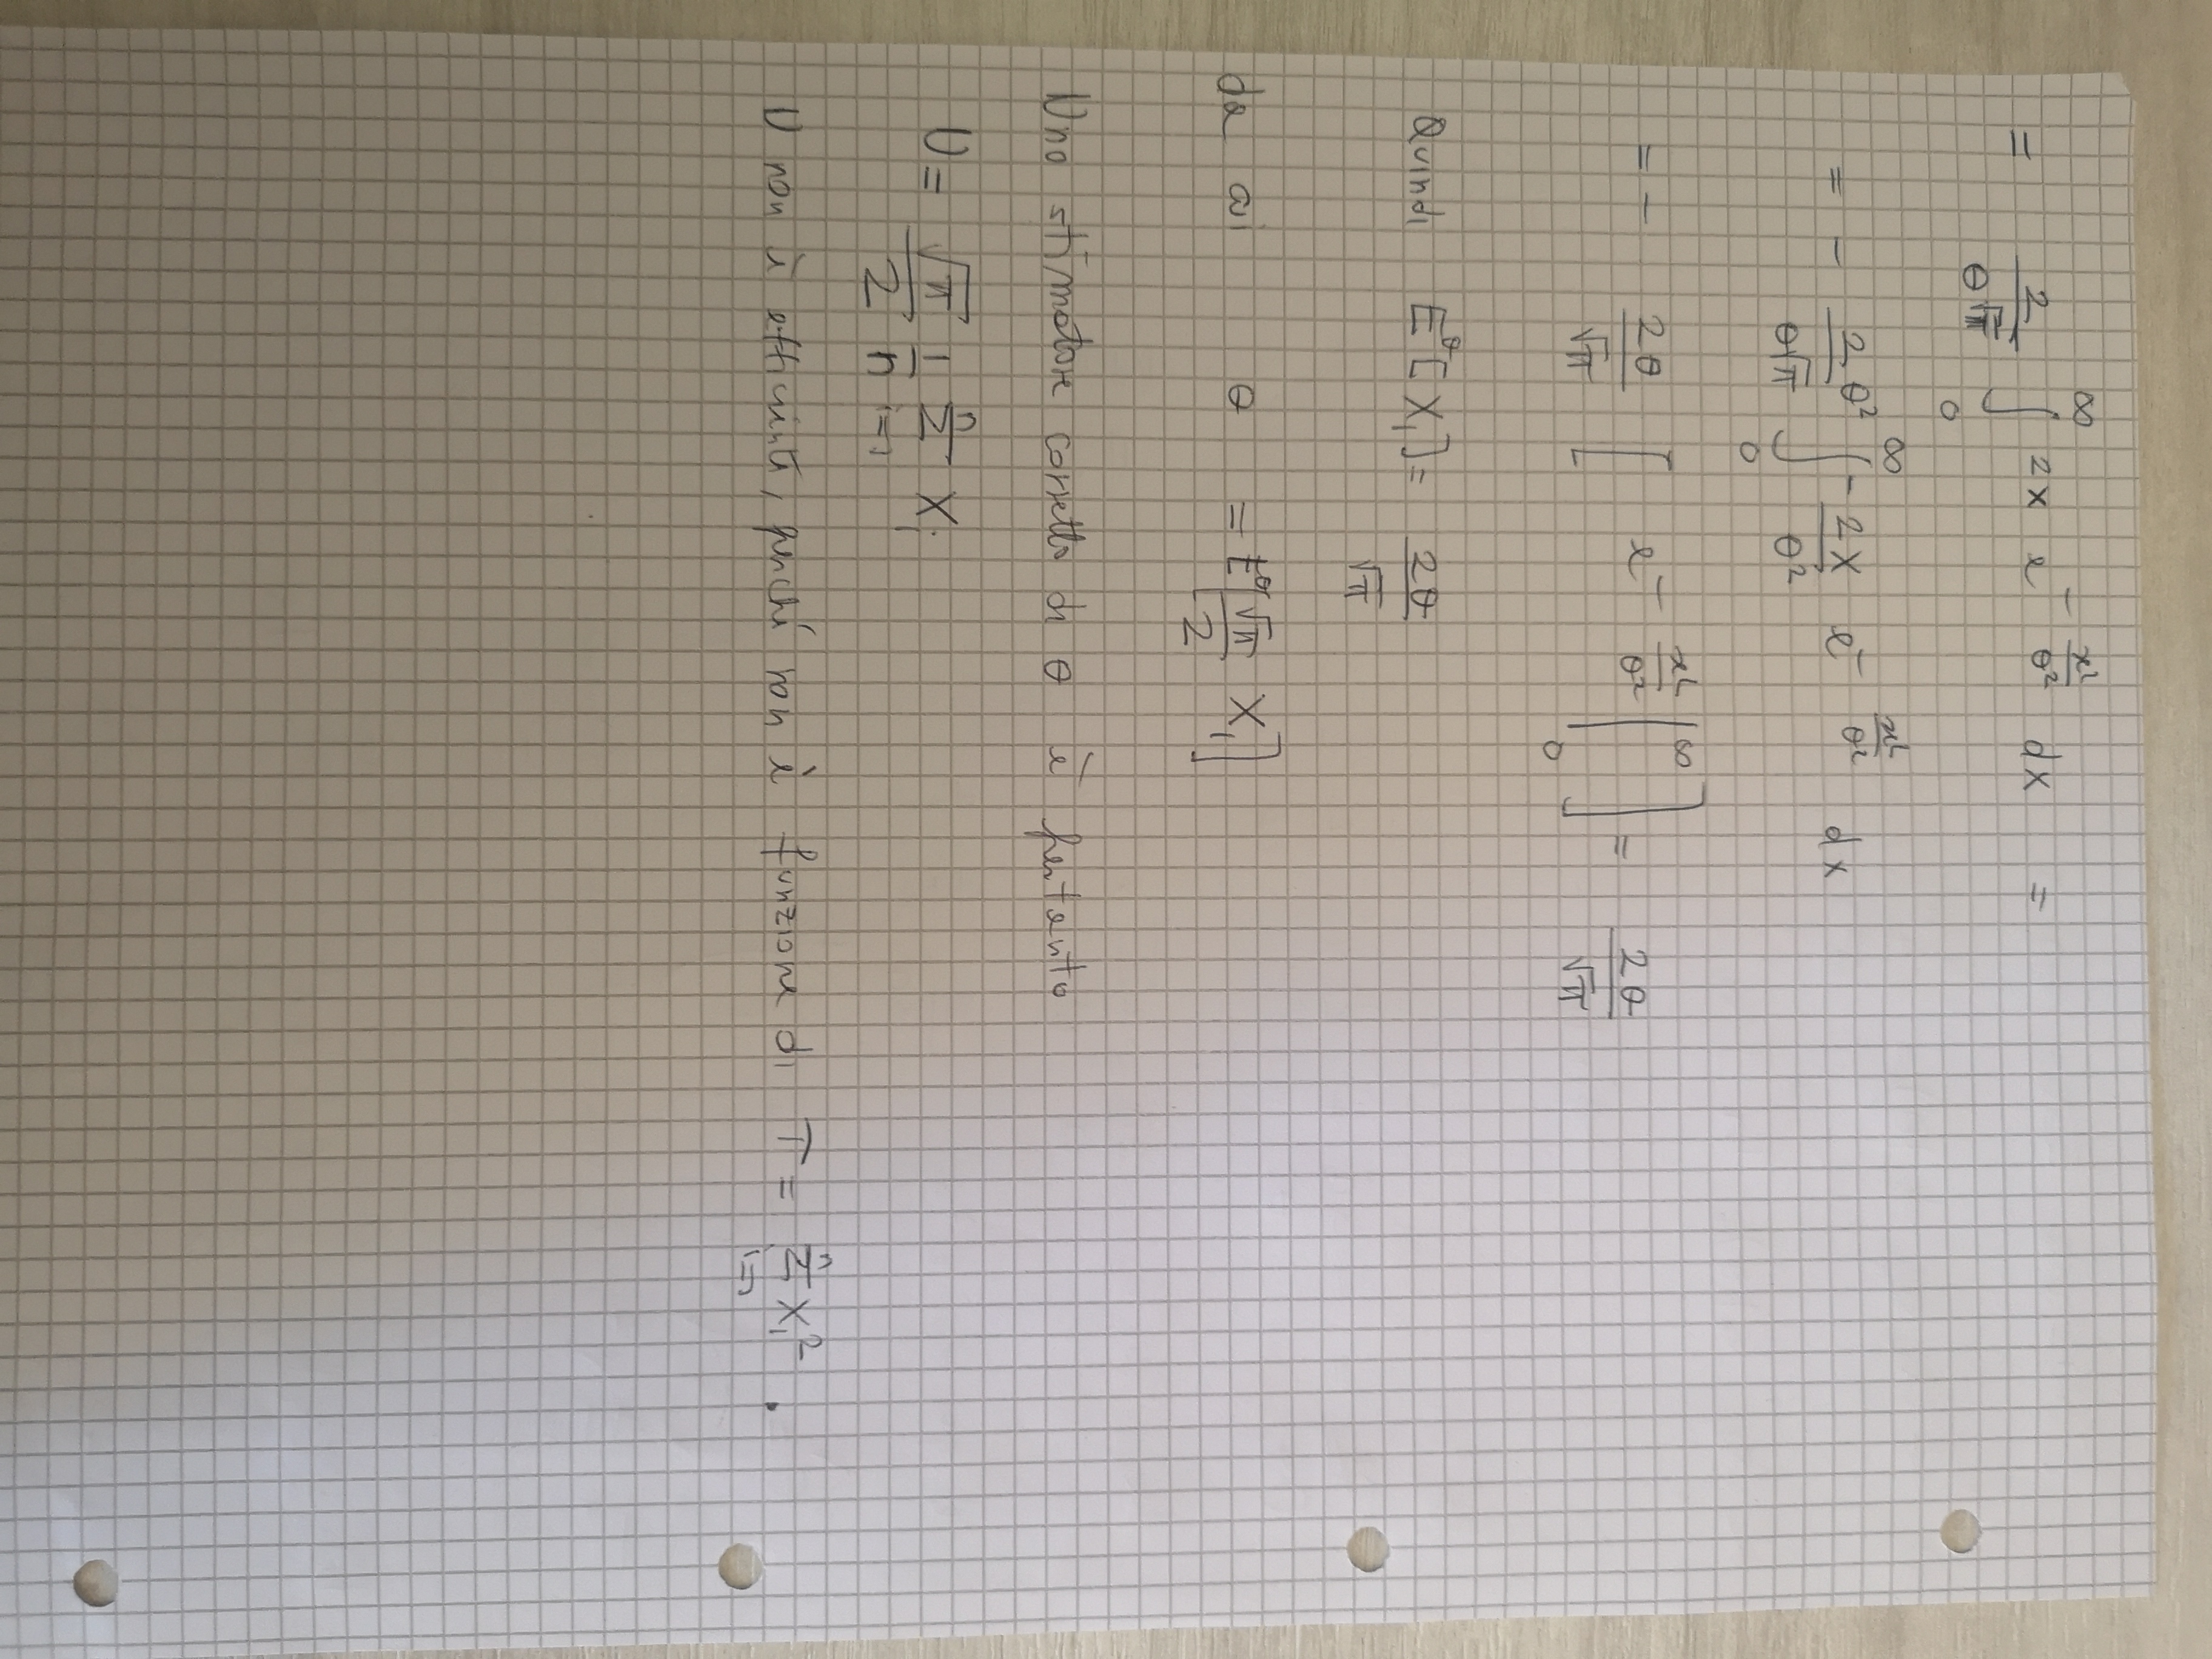 = 2/(θ√π) ∫₀^∞ 2x e^(-x²/θ²) dx =
= - 2θ²/(θ√π) ∫₀^∞ -2x/θ² e^(-x²/θ²) dx
= - 2θ/√π [ e^(-x²/θ²) |₀^∞ ] = 2θ/√π
Quindi E^θ[X₁] = 2θ/√π
da cui θ = E^θ[√π/2 X₁]
Uno stimatore corretto di θ è pertanto
U = √π/2 1/n Σ_{i=1}^n X_i
U non è efficiente, perché non è funzione di T = Σ_{i=1}^n X_i² .